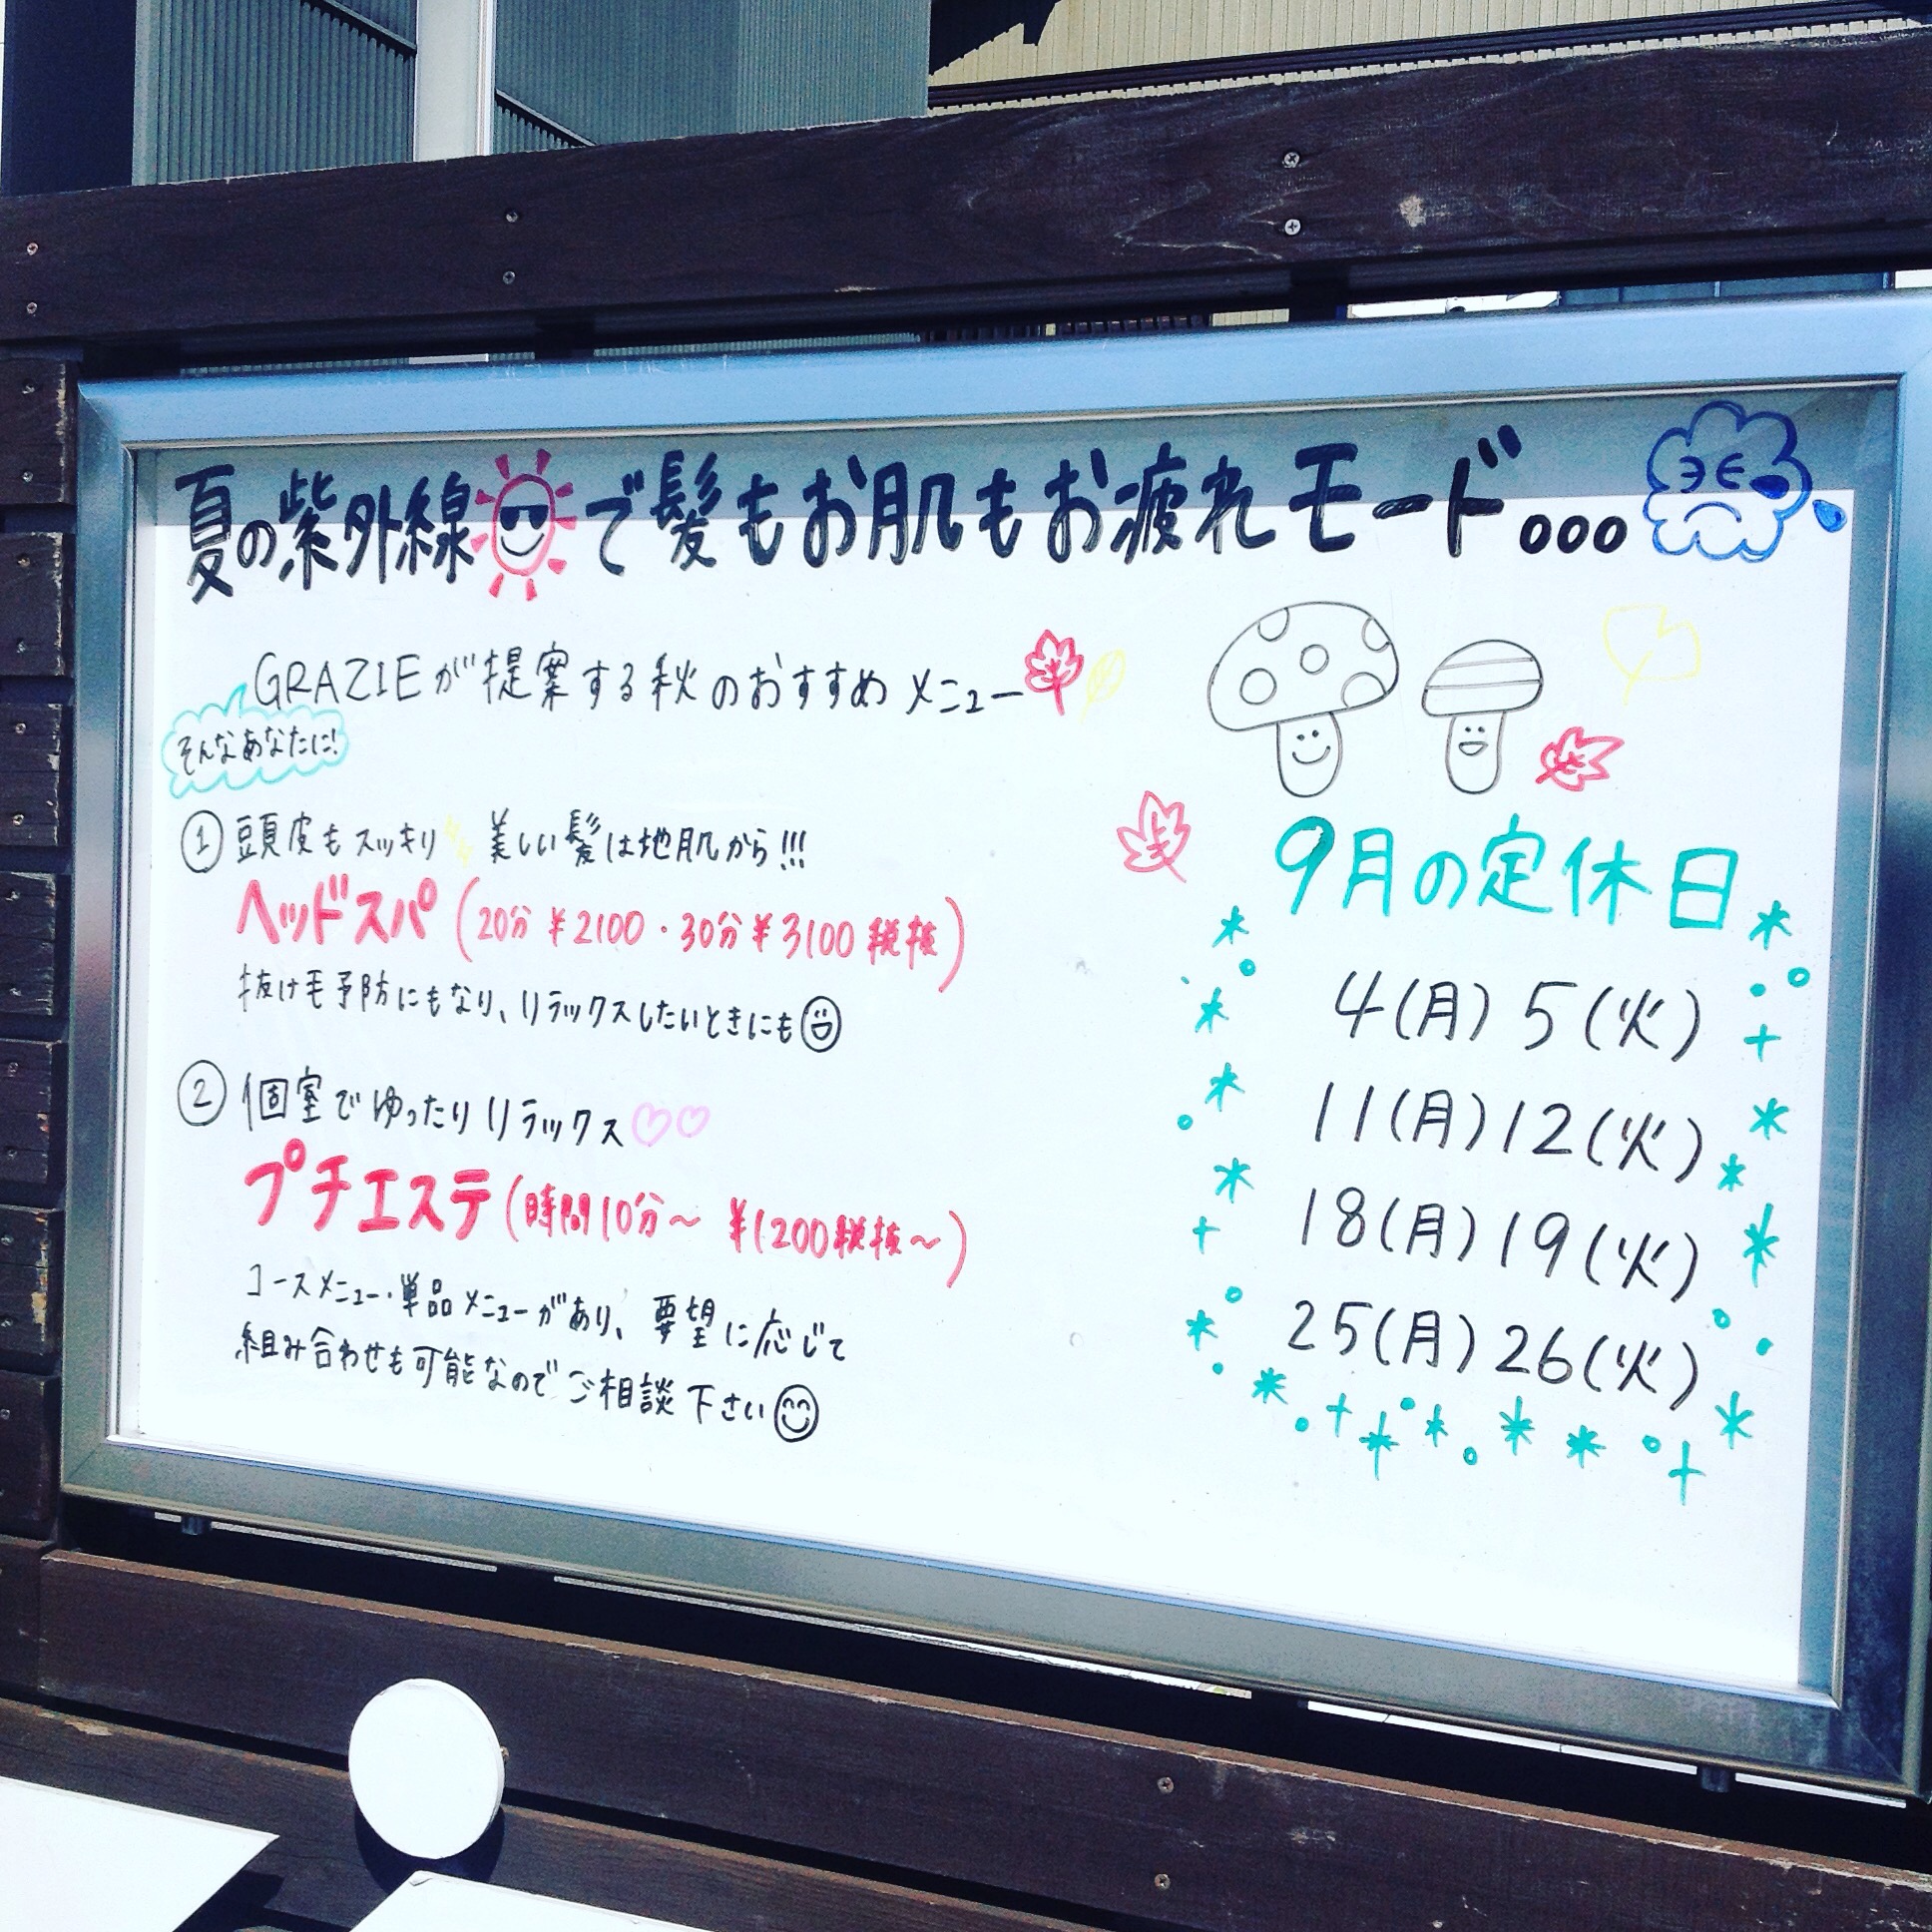 夏の紫外線で髪もお肌もお疲れモード。。。
GRAZIEが提案する秋のおすすめメニュー
そんなあなたに!
① 頭皮もスッキリ 美しい髪は地肌から!!!
ヘッドスパ (20分 ¥2100・30分 ¥3100 税抜)
抜け毛予防にもなり、リラックスしたいときにも
② 個室でゆったりリラックス
プチエステ (時間10分〜 ¥1200税抜〜)
コースメニュー・単品メニューがあり、要望に応じて
組み合わせも可能なのでご相談下さい
9月の定休日
4(月) 5(火)
11(月) 12(火)
18(月) 19(火)
25(月) 26(火)